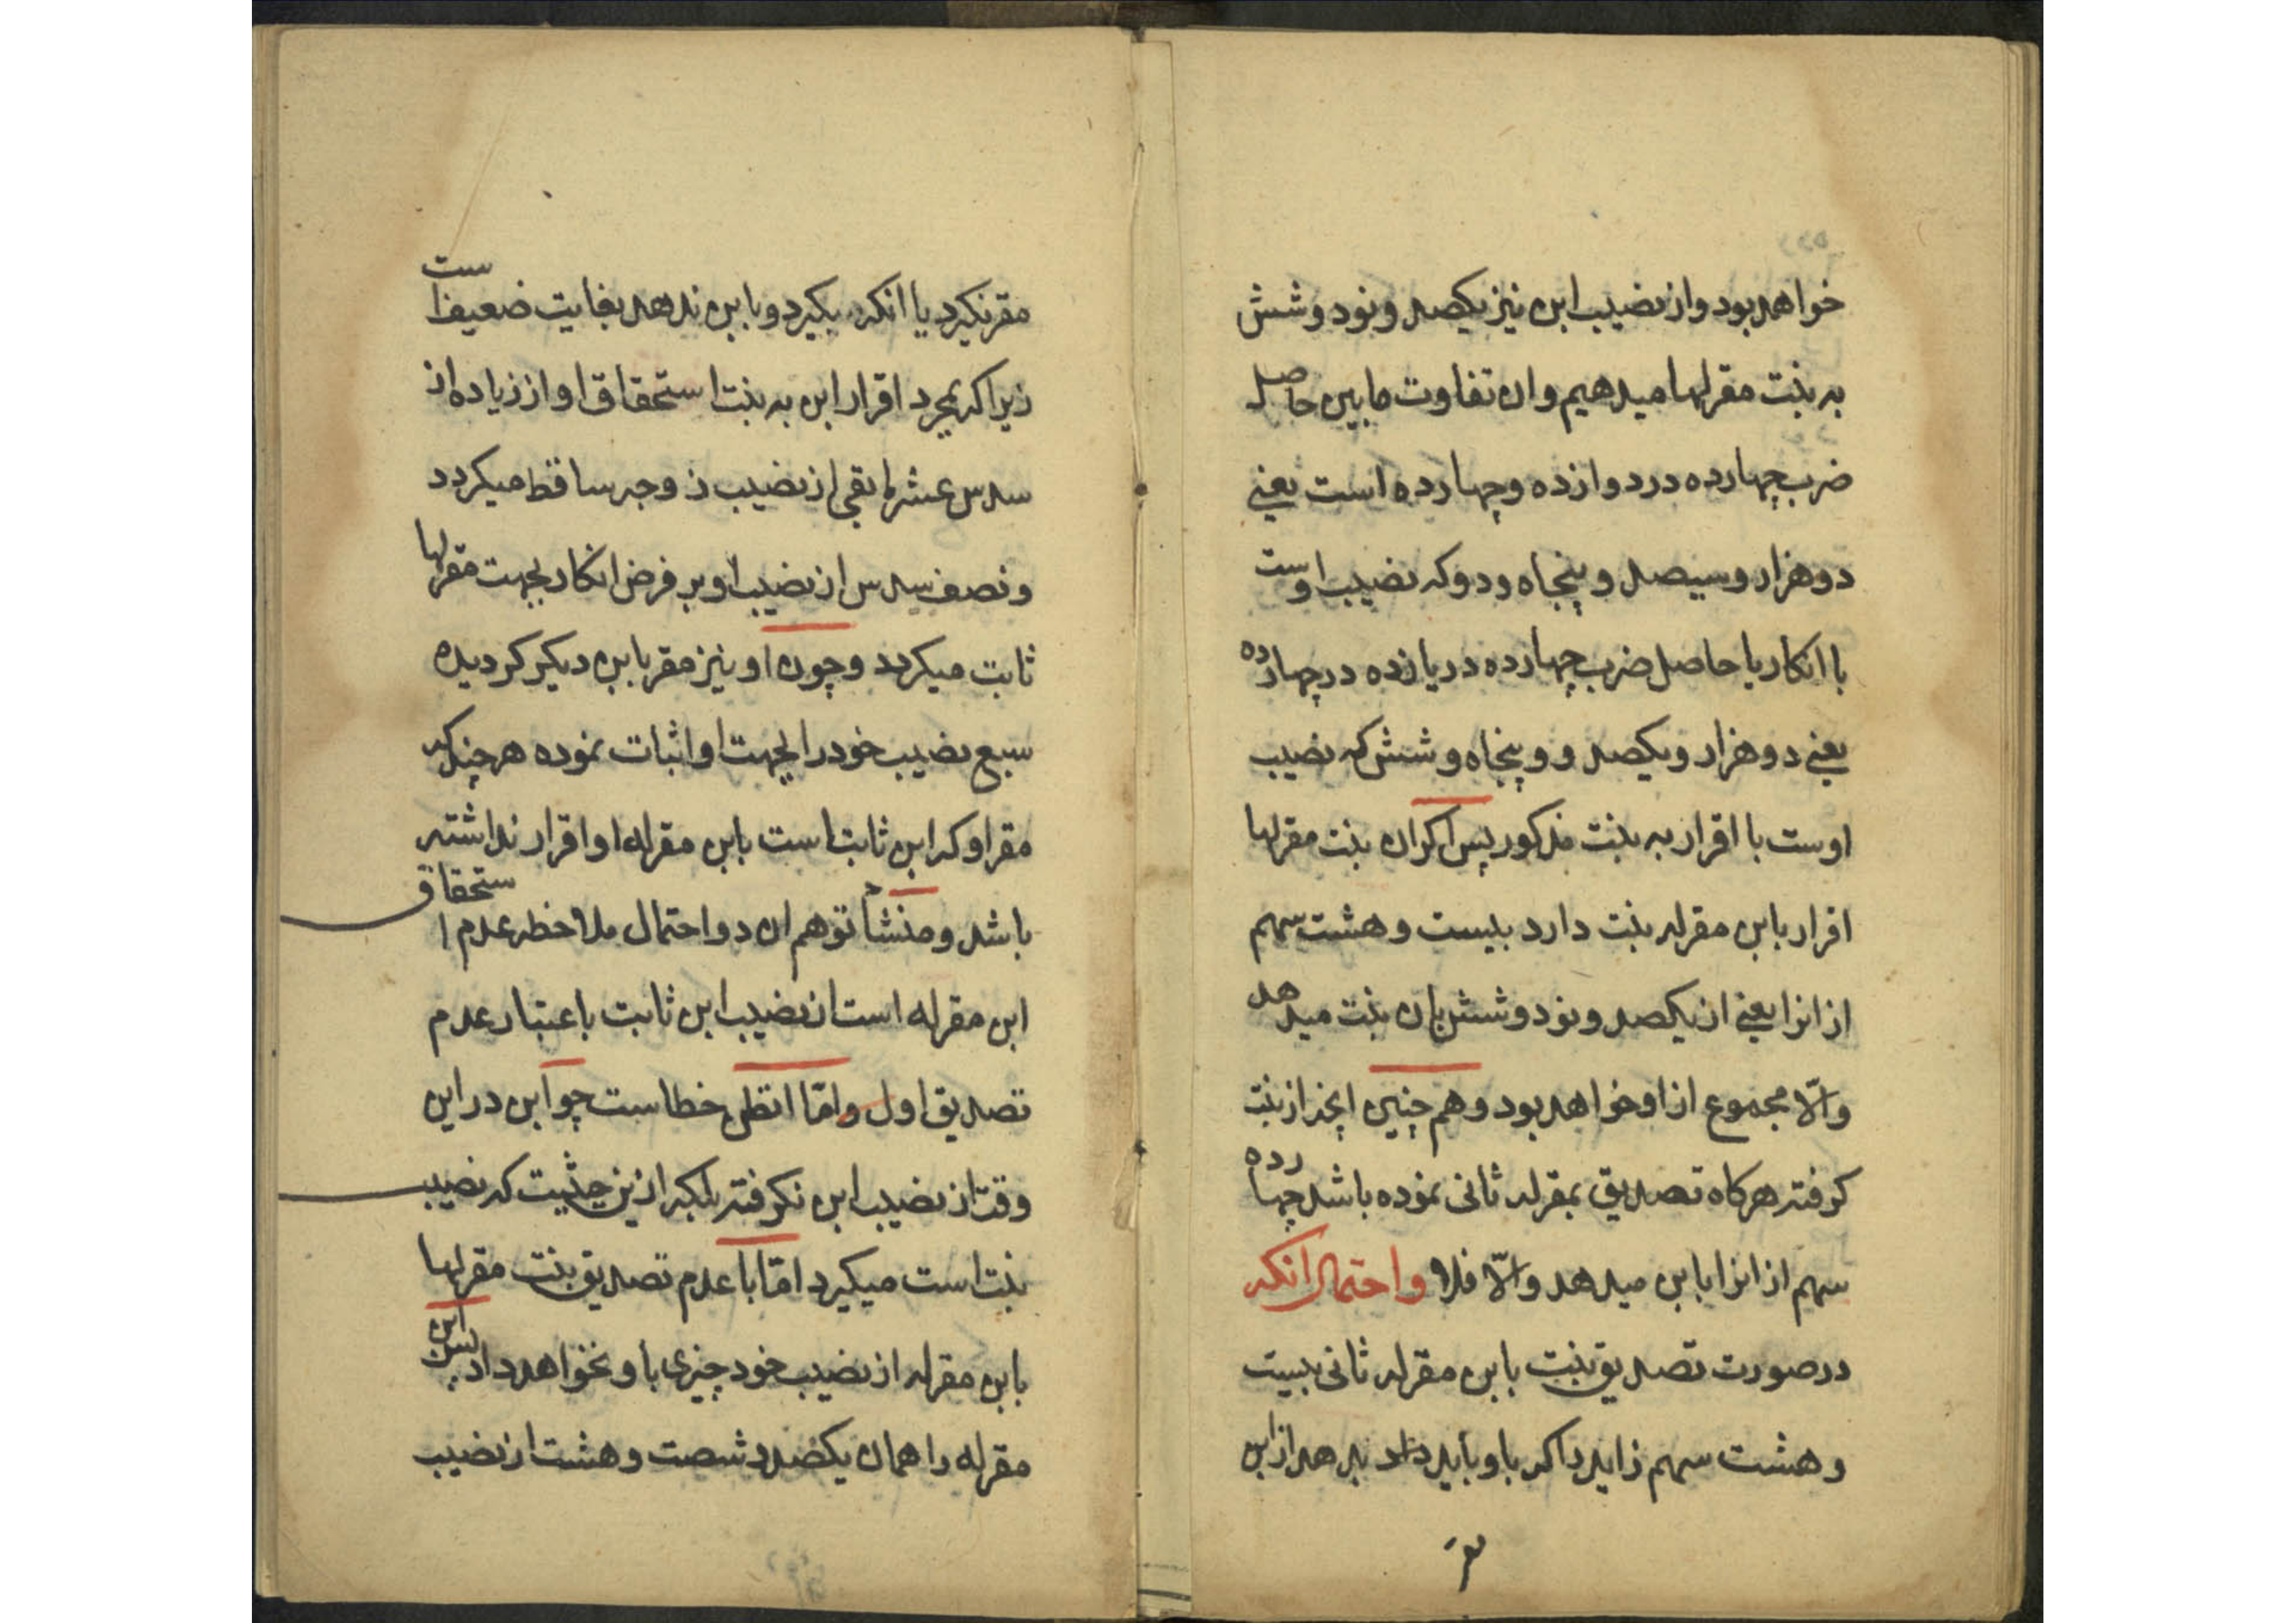 خواهد بود و از نصیب ابن نیز یکصد و نود و شش
به بنت مقرلها میدهیم و ان تفاوت مابین حاصل
ضرب چهارده در دوازده و چهارده است یعنی
دو هزار و سیصد و پنجاه و دو که نصیب اوست
با انکار یا حاصل ضرب چهارده در یازده در چهارده
یعنی دو هزار و یکصد و و پنجاه و شش که نصیب
اوست با اقرار به بنت مذکور پس اکر ان بنت مقرلها
اقرار بابن مقرله بنت دارد بیست و هشت سهم
از انرا یعنی از یکصد و نود و شش بان بنت میدهد
والّا مجموع از او خواهد بود و هم چنین انچه از بنت
کرفته هرکاه تصدیق بمقرله ثانی نموده باشد چهارده
سهم از انرا بابن میدهد والّا فلا و احتمال انکه
در صورت تصدیق بنت بابن مقرله ثانی بیست
و هشت سهم زاید را که باو باید داد بدهد از ابن
مقر
مقر نکیرد یا انکه بکیرد و بابن ندهد بغایت ضعیف است
زیرا که بمجرد اقرار ابن به بنت استحقاق او از زیاده از
سدس عشر مابقی از نصیب زوجه ساقط میکردد
و نصف سدس از نصیب او بر فرض انکار بجهت مقرلها
ثابت میکردد و چون او نیز مقر بابن دیکر کردیده
سبع نصیب خود را بجهت او اثبات نموده هر چند که
مقر او که ابن ثابت است بابن مقرله او اقرار نداشته
باشد و منشأ توهم ان دو احتمال ملاحظه عدم استحقاق
ابن مقرله است از نصیب ابن ثابت باعتبار عدم
تصدیق اول و امّا انظر خطاست چو ابن در این
وقت از نصیب ابن نکرفته بلکه از این حیثیت که نصیب
بنت است میکیرد امّا با عدم تصدیق بنت مقرلها
بابن مقرله از نصیب خود چیزی باو نخواهد داد پس ابن
مقرله را همان یکصد و شصت و هشت از نصیب